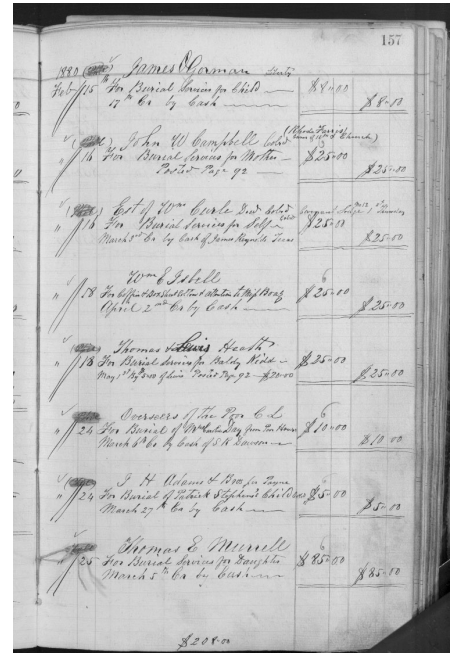 157
1880 James O'Gorman
Feb 15th For Burial Services for Child $8.00
17th Cr by Cash $8.00
John W Campbell Cold
" 16 For Burial Services for Mother $25.00
Posted Page 92 $25.00
Est of Wm Curle Decd Cold
" 16 For Burial Services for Self $25.00
March 3rd Cr by Cash of James Reynolds $25.00
Wm E Isbell
" 18 For Coffin & Box $25.00
April 2nd Cr by Cash $25.00
Thomas & Heath
" 18 For Burial Services for Baldy Kidd $25.00
May 1st By $5.00 Posted Page 92 $20.00 $25.00
Overseers of the Poor C L
" 24 For Burial of from Poor House $10.00
March 6th Cr by Cash of S R Dawson $10.00
J H Adams & Bro for Payne
" 24 For Burial of Patrick Stephens Child $5.00
March 27th Cr by Cash $5.00
Thomas E Murrell
" 25 For Burial Services for Daughter $85.00
March 5th Cr by Cash $85.00
$208.00